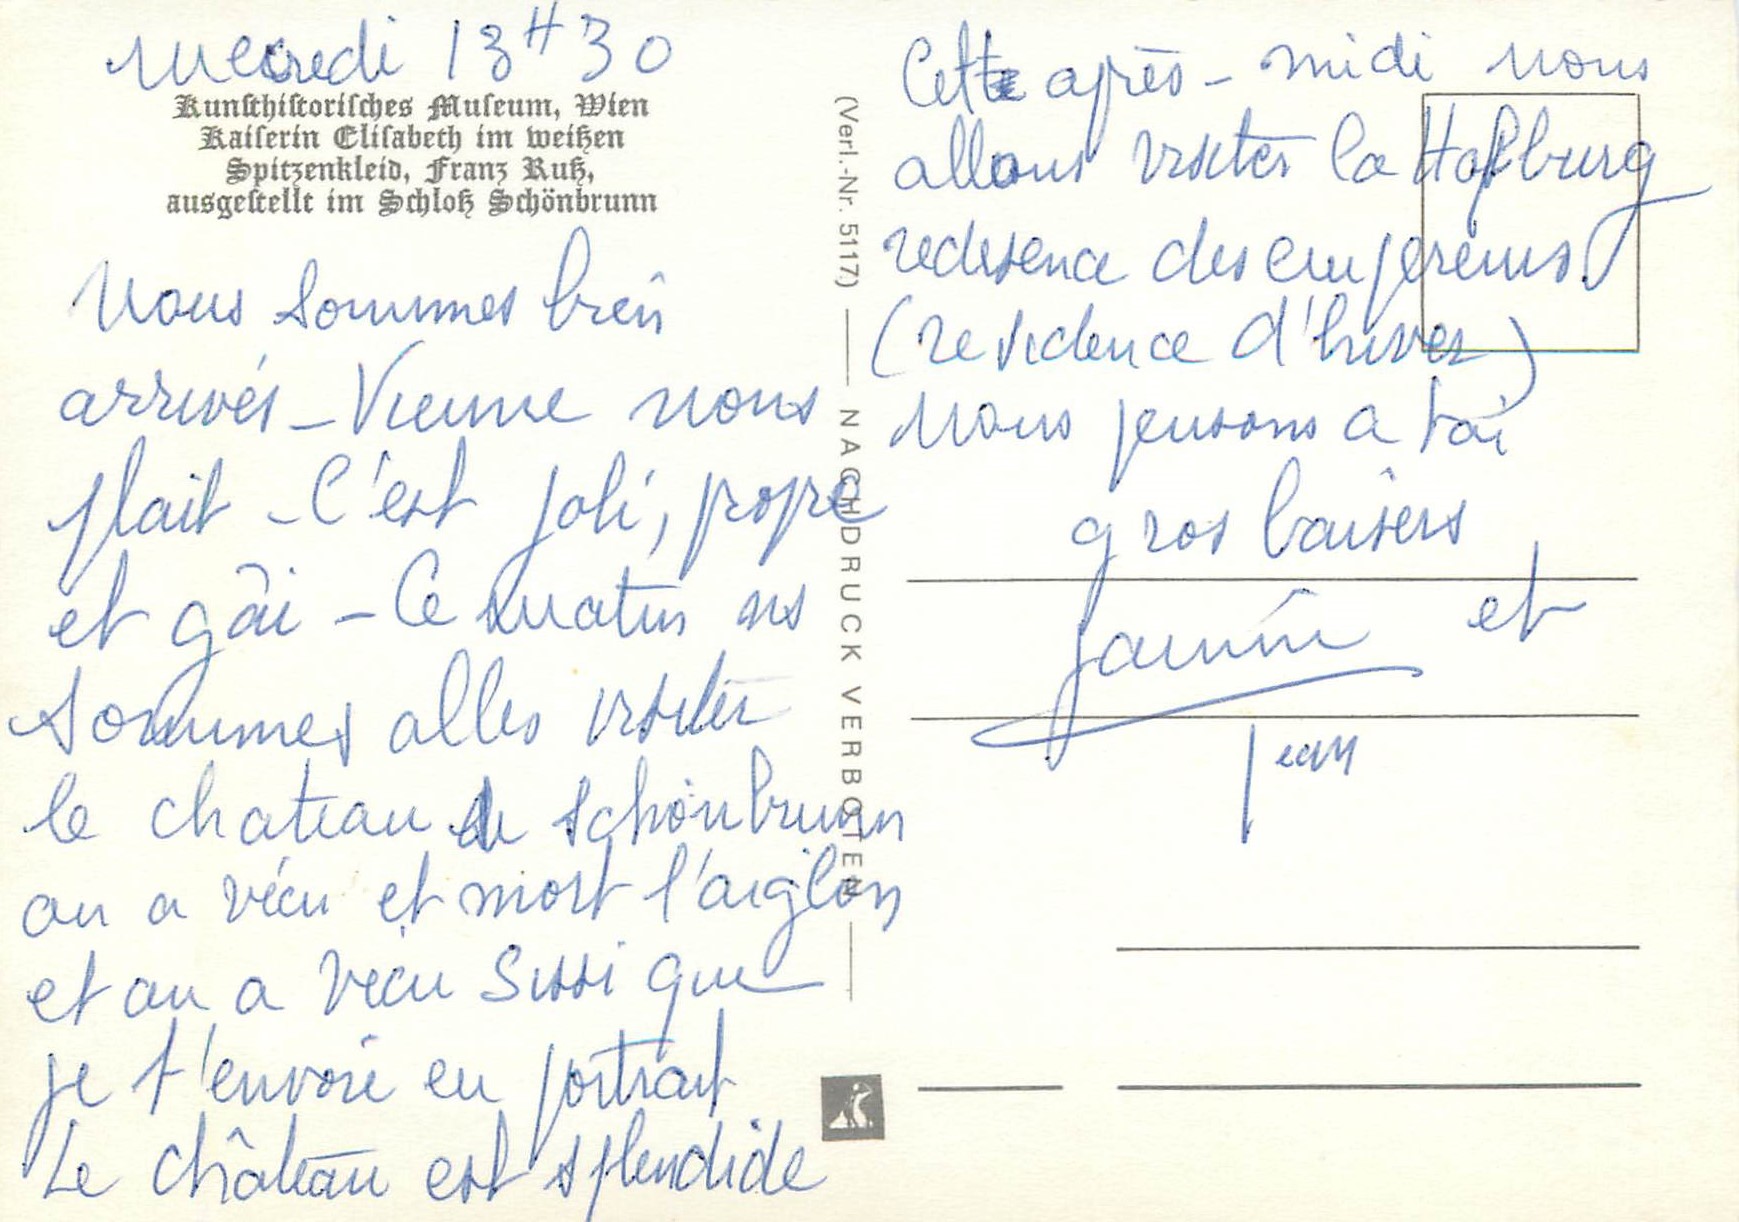 Mercredi 13H30
Kunsthistorisches Museum, Wien
Kaiserin Elisabeth im weißen
Spitzenkleid, Franz Ruß,
ausgestellt im Schloß Schönbrunn
Nous sommes bien
arrivés - Vienne nous
plait - C'est joli, propre
et gâi - Ce matin ns
sommes alles visiter
le chateau de Schönbrunn
ou a vécu et mort l'aiglon
et ou a vécu Sissi que
je t'envoie en portrait
Le château est splendide
(Verl.-Nr. 5117) — NACHDRUCK VERBOTEN —
Cette après-midi nous
allons visiter la Hofburg
redesence des empereurs.
(residence d'hiver)
Nous pensons a toi
gros baisers
Janine et
Jean